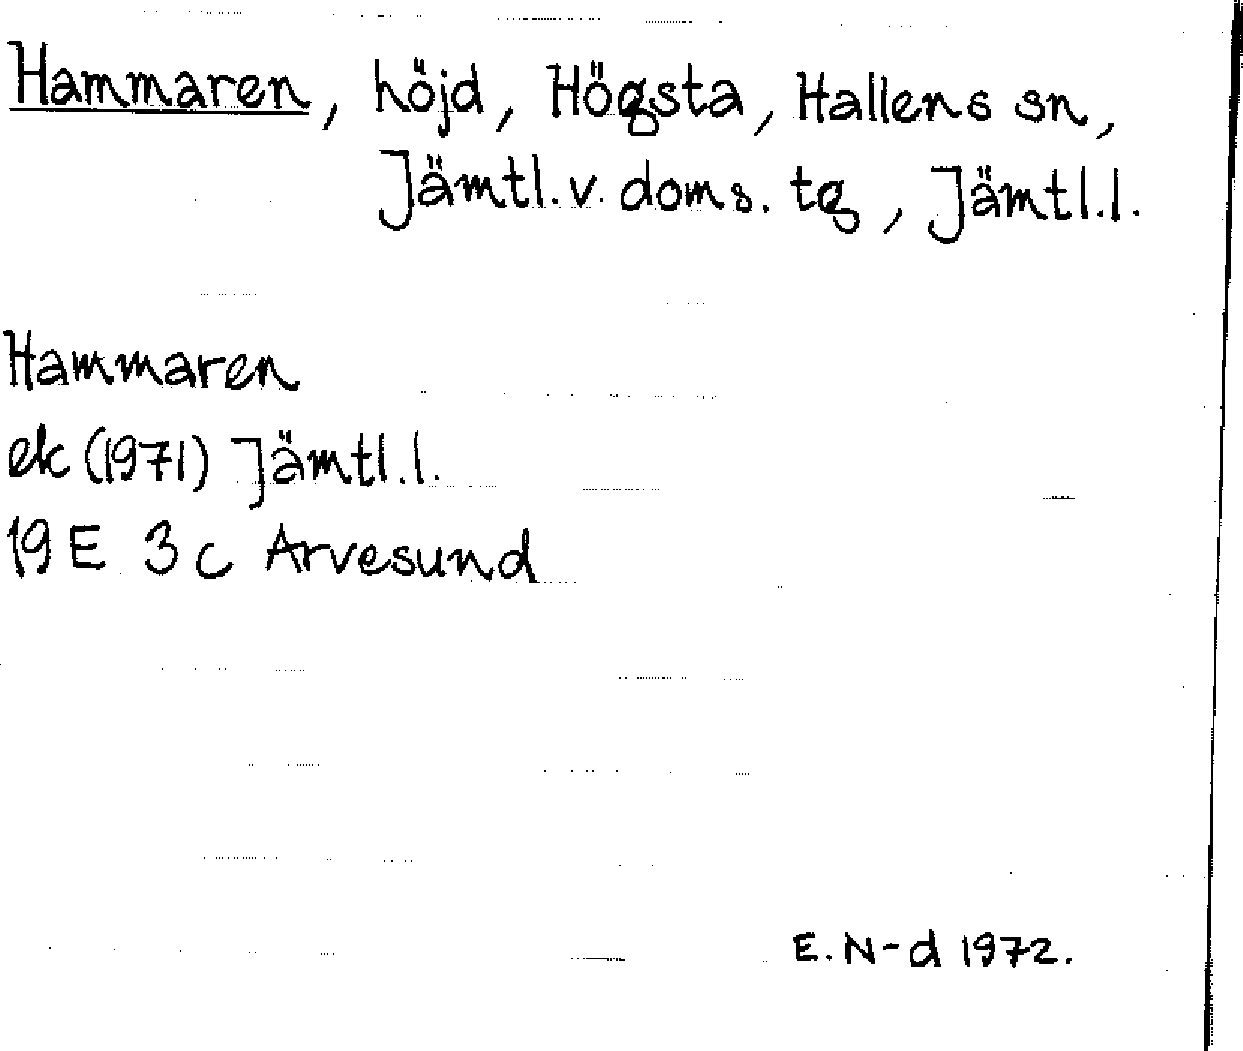 Hammaren, höjd, Högsta, Hallens sn,
Jämtl.v. doms. tg, Jämtl.l.
Hammaren
ek (1971) Jämtl.l.
19 E 3 c Arvesund
E. N-d 1972.